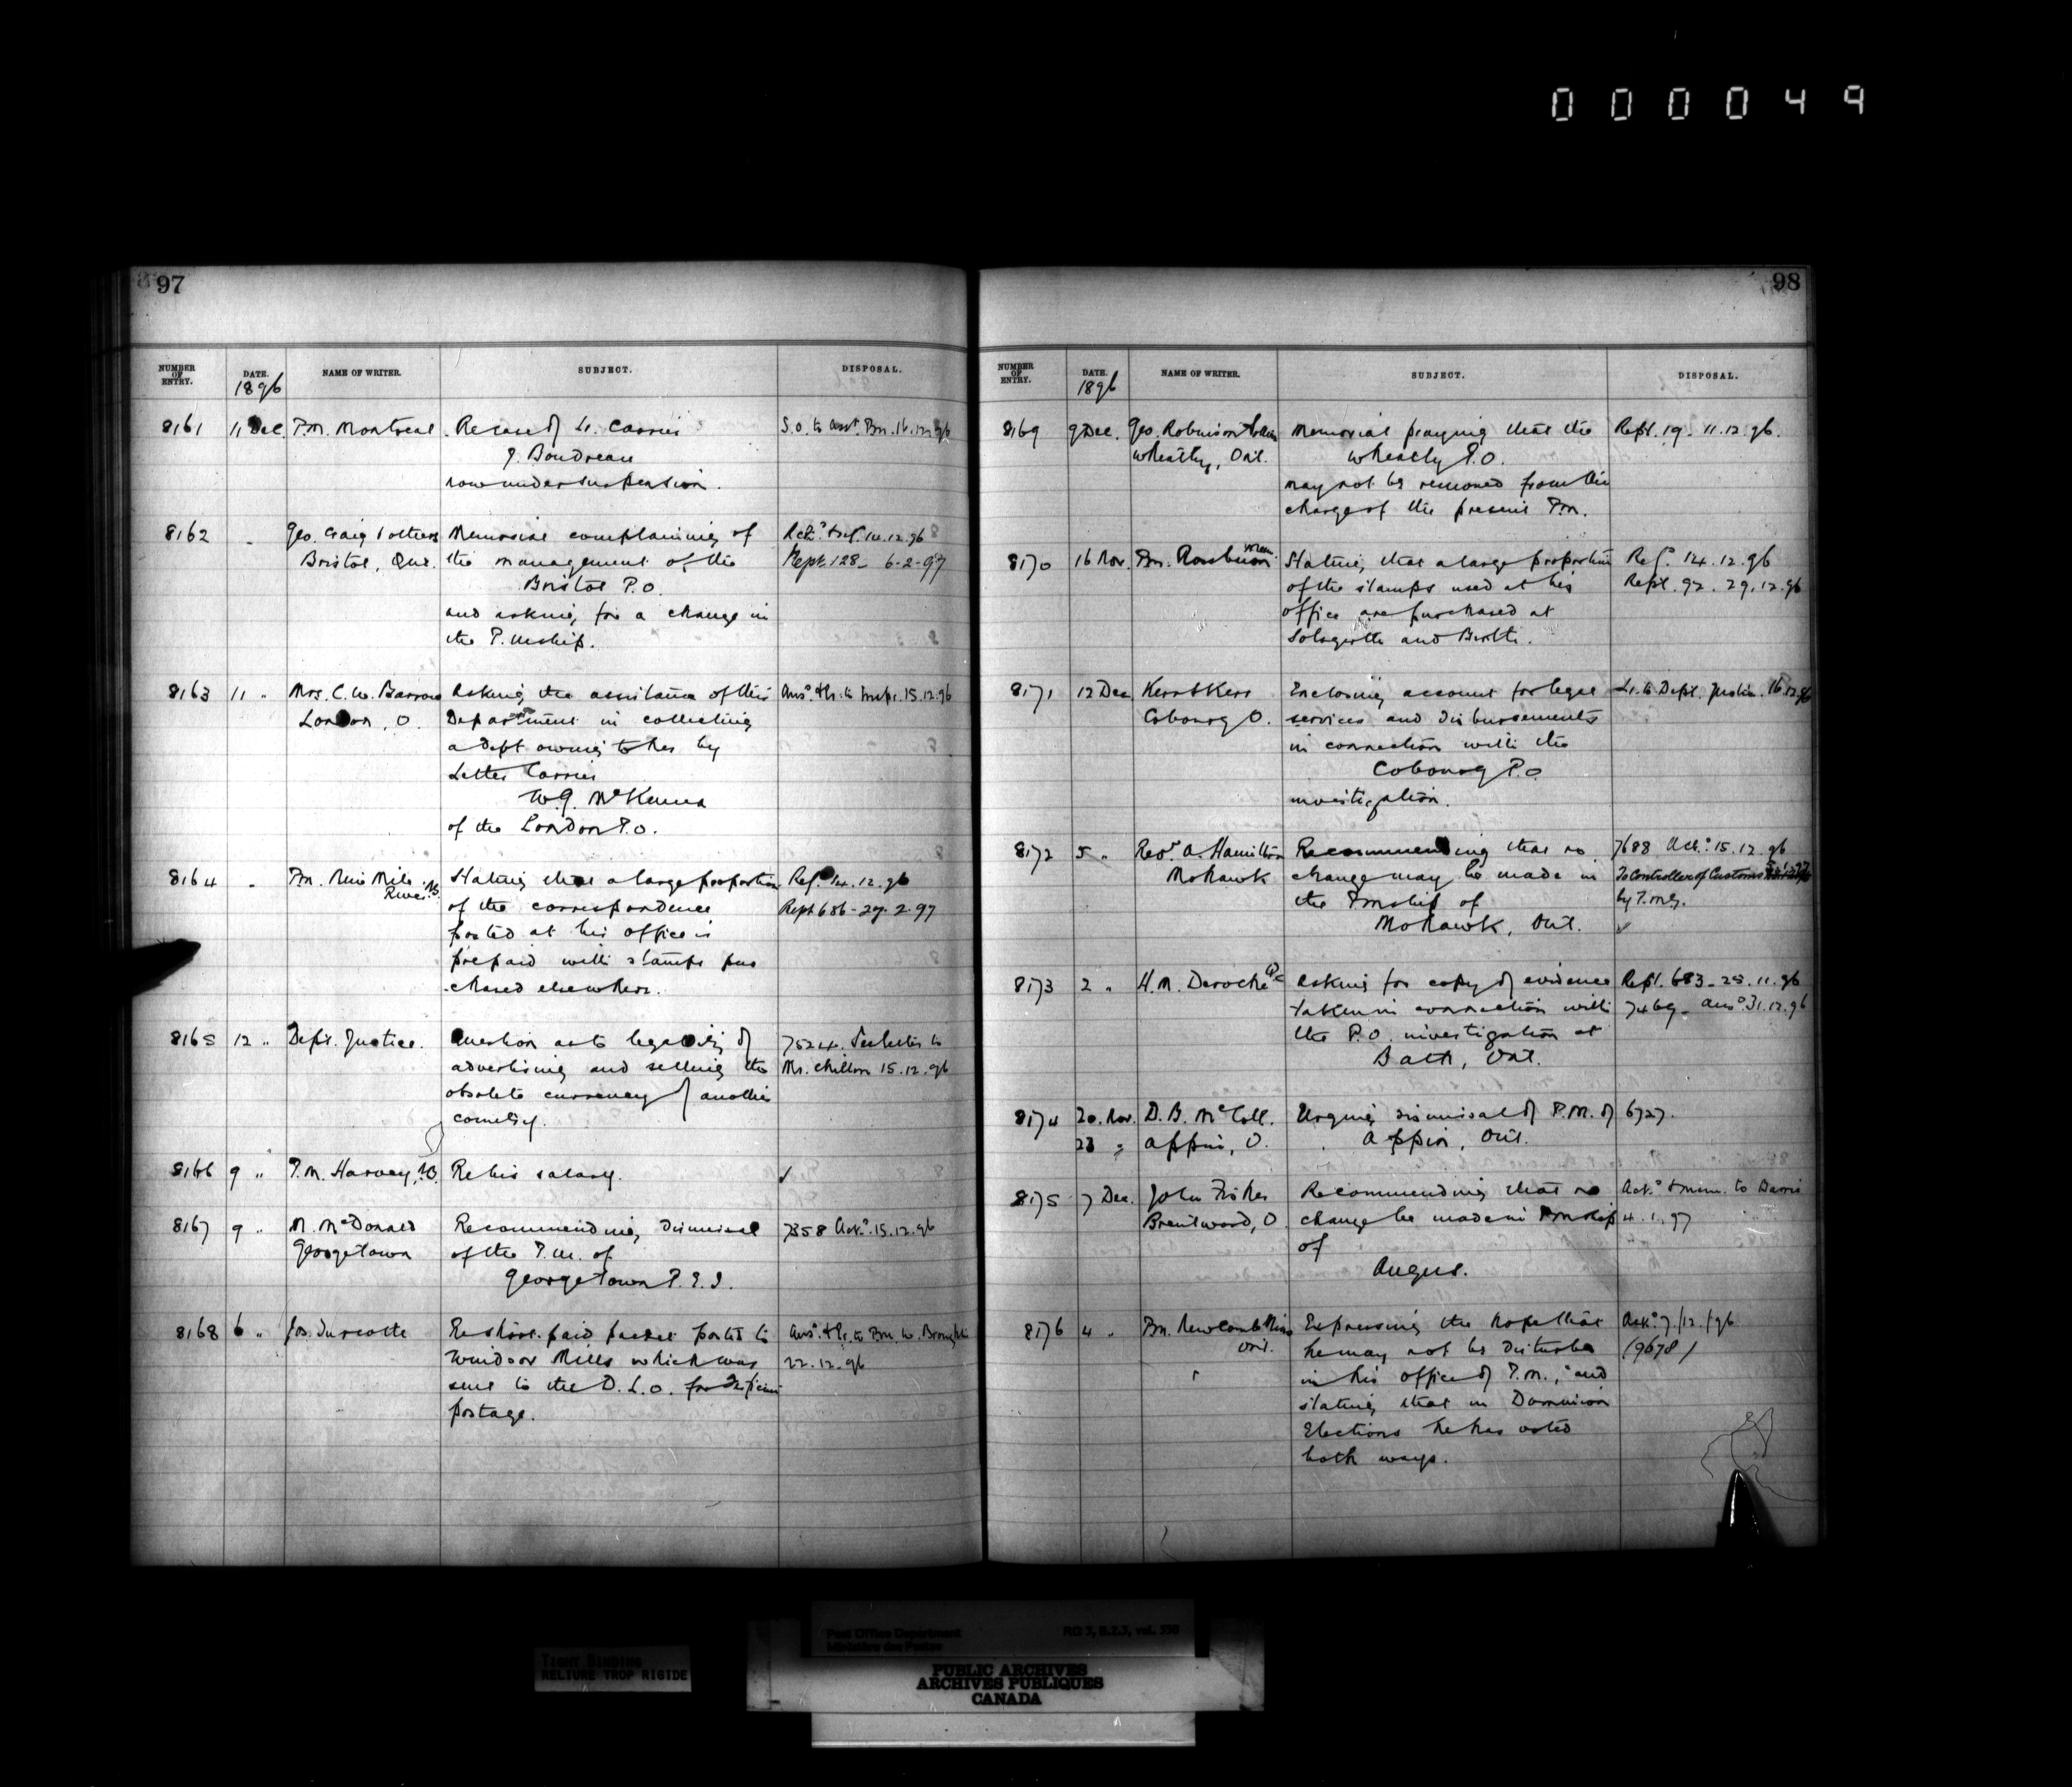 000049
97
NUMBER OF ENTRY. DATE. NAME OF WRITER. SUBJECT. DISPOSAL.
1896
8161 11 Dec. P.M. Montreal Re case of Lr. Carrier S.O. to asst. Pm. 16.12.96
J. Boudreau
now under suspension.
8162 " Geo. Craig & others Memorial complaining of Ack.d & ref. 14.12.96
Bristol, Que. the management of the Rept. 128_ 6-2-97
Bristol P.O.
and asking for a change in
the P.Mship.
8163 11 " Mrs. C. W. Barrow Asking the assistance of this Ans.d & Lr. to Inspr. 15.12.96
London, O. Department in collecting
a debt owing to her by
Letter Carrier
W.J. McKenna
of the London P.O.
8164 " Pm. Nine Mile Stating that a large proportion Ref.d 14.12.96
River N.S. of the correspondence Rept 686-27.2.97
posted at his office is
prepaid with stamps pur
chased elsewhere.
8165 12 " Dept. Justice. Question as to legality of 7524. to
advertising and selling the Mr. Chillon 15.12.96
obsolete currency of another
country.
8166 9 " P.M. Harvey, N.B. Re his salary. ✓
8167 9 " M. McDonald Recommending dismissal 7358 Ack.d 15.12.96
Georgetown of the P.M. of
Georgetown P.E.I.
8168 6 " Jos. Turcotte Re short-paid packet posted to Ans.d & Lr. to Pm. W. Brompton
Windsor Mills which was 22.12.96
sent to the D.L.O. for deficient
postage.
98
NUMBER OF ENTRY. DATE. NAME OF WRITER. SUBJECT. DISPOSAL.
1896
8169 9 Dec. Geo. Robinson & others Memorial praying that the Rept. 19. 11.12.96.
Wheatley, Ont. Wheatley P.O.
may not be removed from the
charge of the present Pm.
8170 16 Nov. Pm. Rossburn Man. Stating that a large proportion Ref.d 14.12.96
of the stamps used at his Rept. 92. 29.12.96
office are purchased at
Solsgirth and Birtle.
8171 12 Dec Kerr & Kerr Enclosing account for legal Lr. to Dept. Justice. 16.12.96
Cobourg O. services and disbursements
in connection with the
Cobourg P.O.
investigation.
8172 5 " Revd. A. Hamilton Recommending that no 7688 Ack.d 15.12.96
Mohawk change may be made in To Controller of Customs
the Pmship of by P.M.G.
Mohawk, Ont. ✓
8173 2 " H.M. Deroche Q.C. Asking for copy of evidence Rept. 683_25.11.96
taken in connection with 7469_ Ans.d 31.12.96
the P.O. investigation at
Bath, Ont.
8174 20. Nov. D. B. McColl. Urging dismissal of P.M. of 6727.
23 " Appin, O. Appin, Ont.
8175 7 Dec. John Fisher Recommending that no Ack.d & mem. to Davis
Brentwood, O. change be made in Pmship 4.1.97
of
Angus.
8176 4 " Pm. Newcombe Mills Expressing the hope that Ack.d 7/12/96
Ont. he may not be disturbed (9678)
in his office of P.M.; and
stating that in Dominion
Elections he has voted
both ways.
Post Office Department RG 3, B.2.3, vol. 530
Ministère des Postes
TIGHT BINDING
RELIURE TROP RIGIDE
PUBLIC ARCHIVES
ARCHIVES PUBLIQUES
CANADA